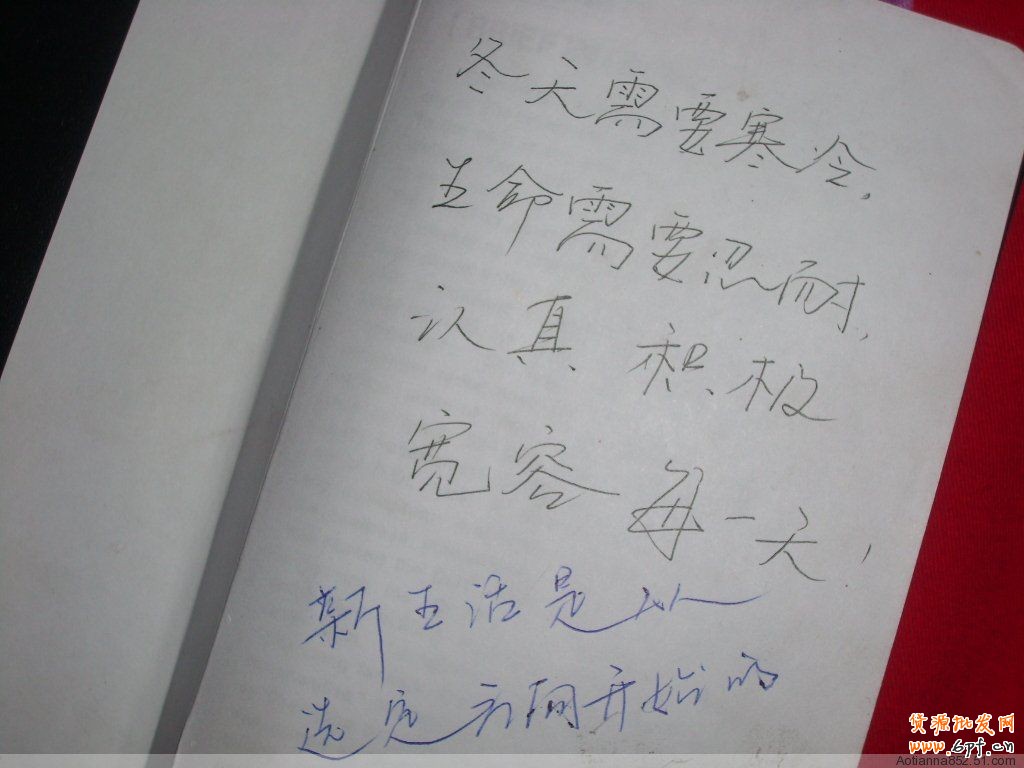 冬天需要寒冷,
生命需要忍耐,
认真 积极
宽容 每一天,
新生活是从
选定方向开始的
货源批发网
www.6pf.cn
Aotianna852.51.com